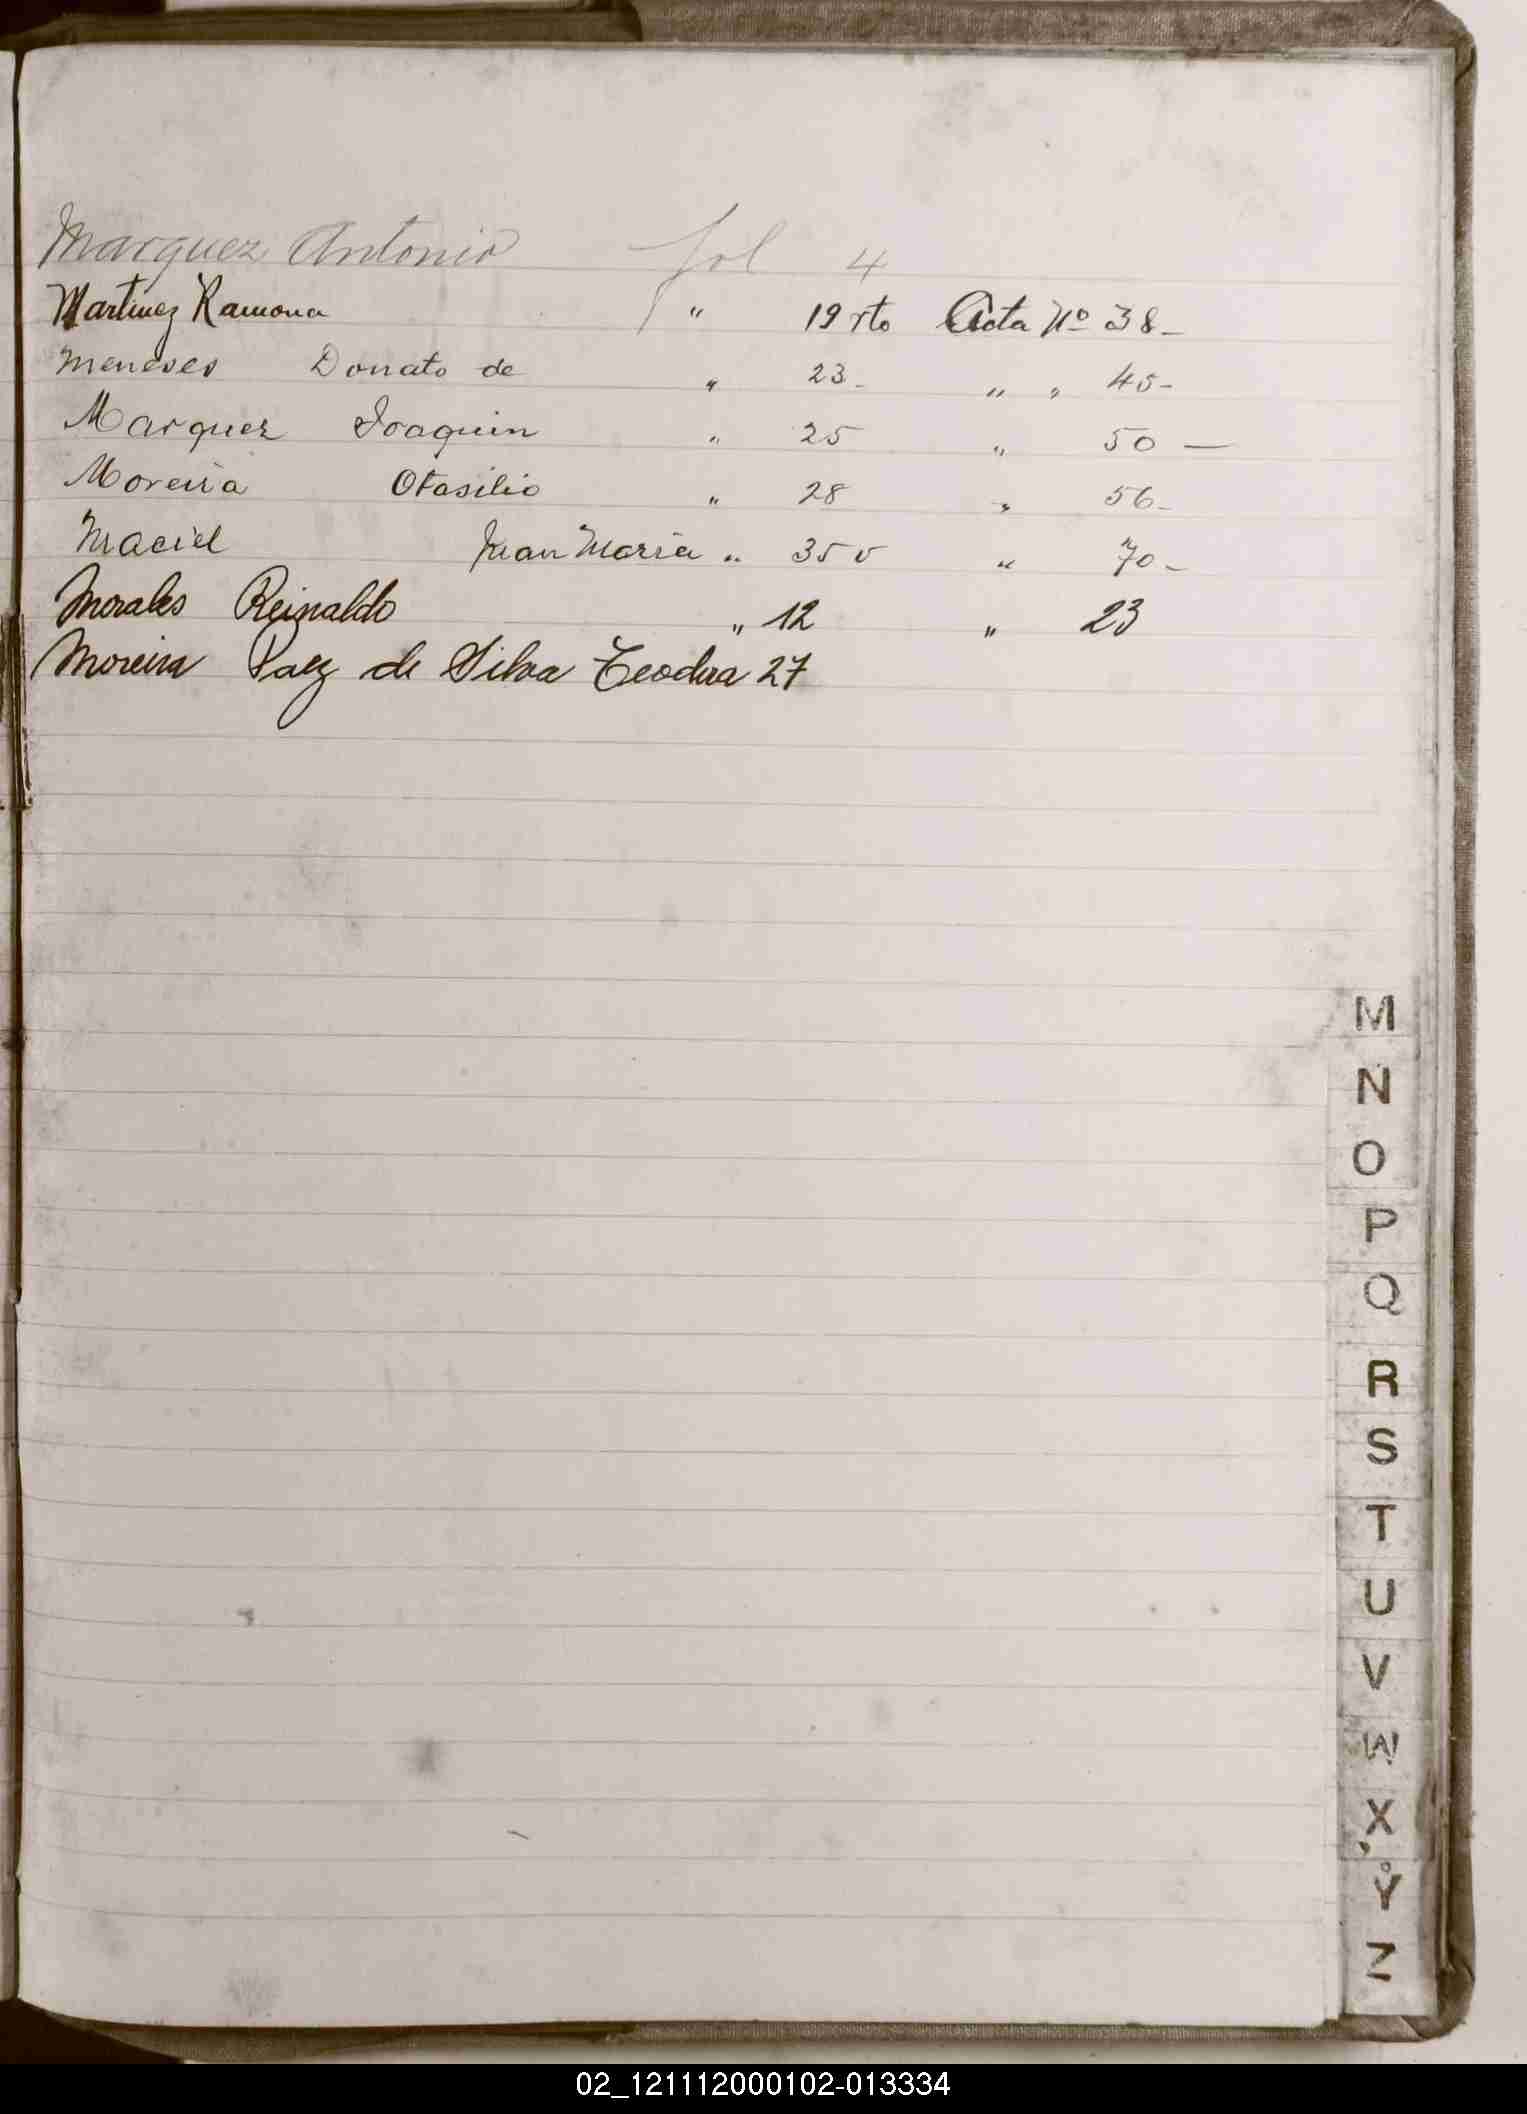 Marquez Antonio fol 4
Martinez Ramona " 19 rto Acta Nº 38-
Meneses Donato de " 23- " " 45-
Marquez Joaquin " 25 " 50 —
Moreira Otasilio " 28 " 56-
Maciel Juan Maria " 35 v " 70-
Morales Reinaldo " 12 " 23
Moreira Paez de Silva Teodora 27
M
N
O
P
Q
R
S
T
U
V
W
X
Y
Z
02_121112000102-013334